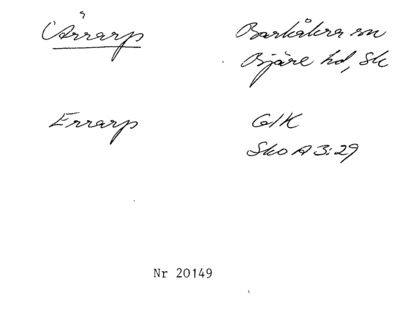 Ärrarp
Barkåkra sn
Bjäre hd, Sk
Errarp
GIK
Sko A 3:29
Nr 20149